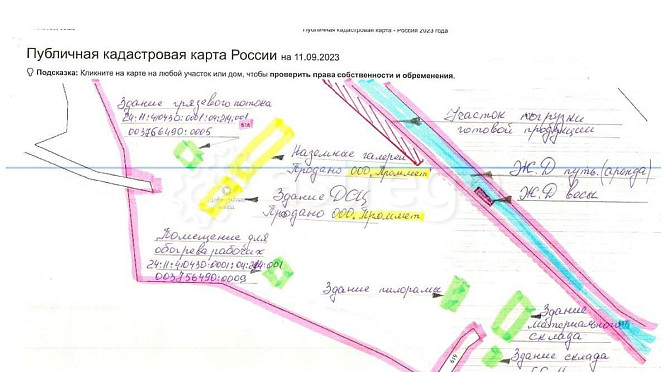 Публичная кадастровая карта - Россия 2023 года
Публичная кадастровая карта России на 11.09.2023
Подсказка: Кликните на карте на любой участок или дом, чтобы проверить права собственности и обременения.
Здание грязевого потока
24:11:410430:0001:04:214:001
003756490:0005
616
Участок погрузки
готовой продукции
Наземные галереи
Продано ООО, Промлет
Ж.Д путь. (аренда)
Ж.Д весы
Здание ДСЦ
Продано ООО, Промлет
Помещение для
обогрева рабочих
003756490:0009
Здание пилорамы
Здание
материального
склада
619
Здание склада